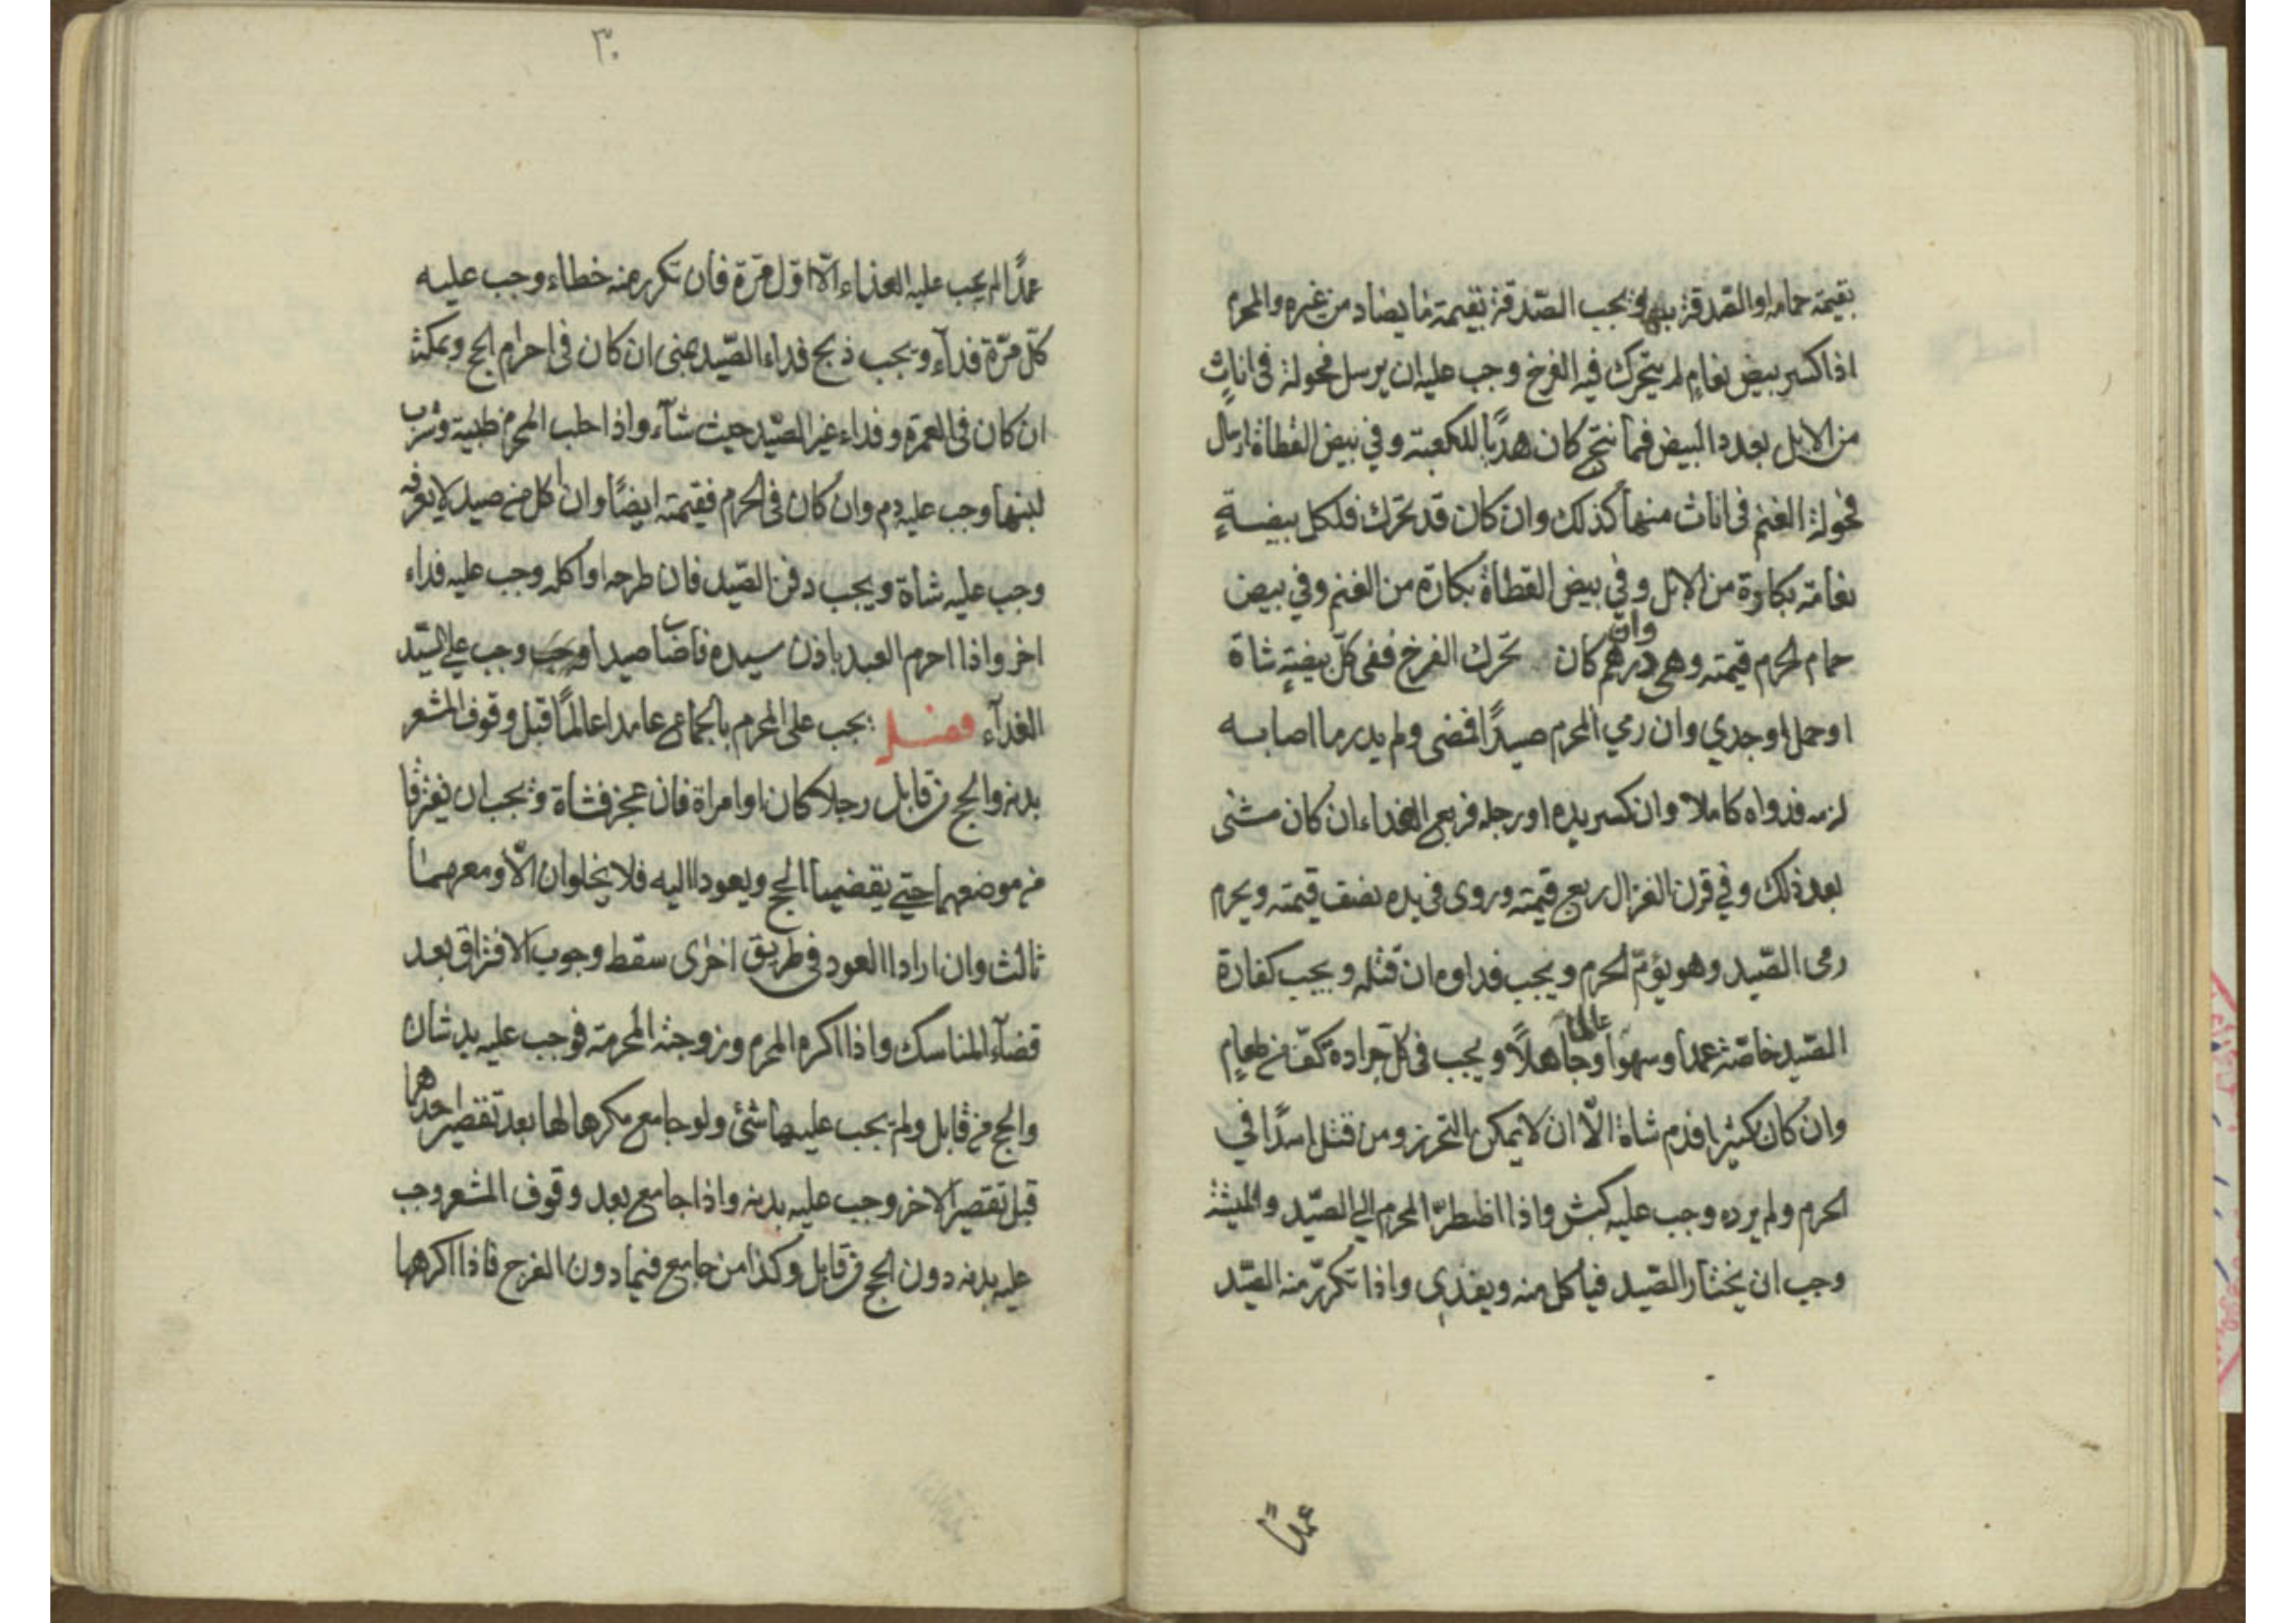 بقيمة حمامه او الصدقة بها ويجب الصّدقة بقيمة ما يضاد من غيره والمحرم
اذا كسر بيض نعام لم يتحرك فيه الفرخ وجب عليه ان يرسل فحولة فى اناثٍ
من الابل بعدد البيض فما نتج كان هديًا للكعبة وفي بيض القطاة ارسال
فحولة الغنم فى اناث منها كذلك وان كان قد تحرك فلكل بيضةٍ
نعامة بكارة من الابل وفي بيض القطاة بكارة من الغنم وفي بيض
حمام الحرم قيمته وهى درهم وان كان تحرك الفرخ ففى كلّ بيضةٍ شاة
او حمل او جدي وان رمي المحرم صيدًا فمضى ولم يدر ما اصابه
لزمه فدواه كاملا وان كسر يده او رجله فربع الفداء ان كان مشى
بعد ذلك وفي قرن الغزال ربع قيمته وروى فى يده نصف قيمته ويحرم
رمى الصّيد وهو يؤمّ الحرم ويجب فداوه ان قتله ويجب كفارة
الصّيد خاصّة عمدا وسهوا عالما وجاهلًا ويجب فى كل جرادة كفّ من طعامٍ
وان كان كثيرا فدم شاة الّا ان لا يمكن التحرز ومن قتل اسدًا في
الحرم ولم يرده وجب عليه كبش واذا اظطرّ المحرم الي الصّيد والميتة
وجب ان يختار الصّيد فياكل منه ويفدي واذا تكرّر منه الصّيد
عمدًا
٣٠
عمدًا لم يجب عليه الفداء الّا اوّل مرّة فان تكرر منه خطاء وجب عليه
كلّ مرّة فدآء ويجب ذبح فداء الصّيد بمنى ان كان فى احرام الحج وبمكة
ان كان فى العمرة وفداء غير الصّيد حيث شآء واذا حلب المحرم ظبية وشرب
لبنها وجب عليه دم وان كان فى الحرم فقيمته ايضًا وان اكل من صيد لا يعرفه
وجب عليه شاة ويجب دفن الصّيد فان طرحه او اكله وجب عليه فداء
اخر واذا احرم العبد باذن سيده فاصاب صيدا وجب علي السّيد
الفدآء فصل يجب على المحرم بالجماع عامدا عالمًا قبل وقوف المشعر
بدنه والحج من قابل رجلا كان او امراة فان عجز فشاة ويجب ان يفترقا
من موضعهما حتي يقضيا الحج ويعودا اليه فلا يخلوان الّا ومعهما
ثالث وان ارادا العود فى طريق اخرى سقط وجوب الافتراق بعد
قضآء المناسك واذا اكره المحرم وزوجته المحرمة فوجب عليه بدنتان
والحج من قابل ولم يجب عليها شئ ولو جامع مكرها لها بعد تقصير احدهما
قبل تقصير الاخر وجب عليه بدنه واذا جامع بعد وقوف المشعر وجب
عليه بدنه دون الحج من قابل وكذا من جامع فيما دون الفرج فاذا اكرهها